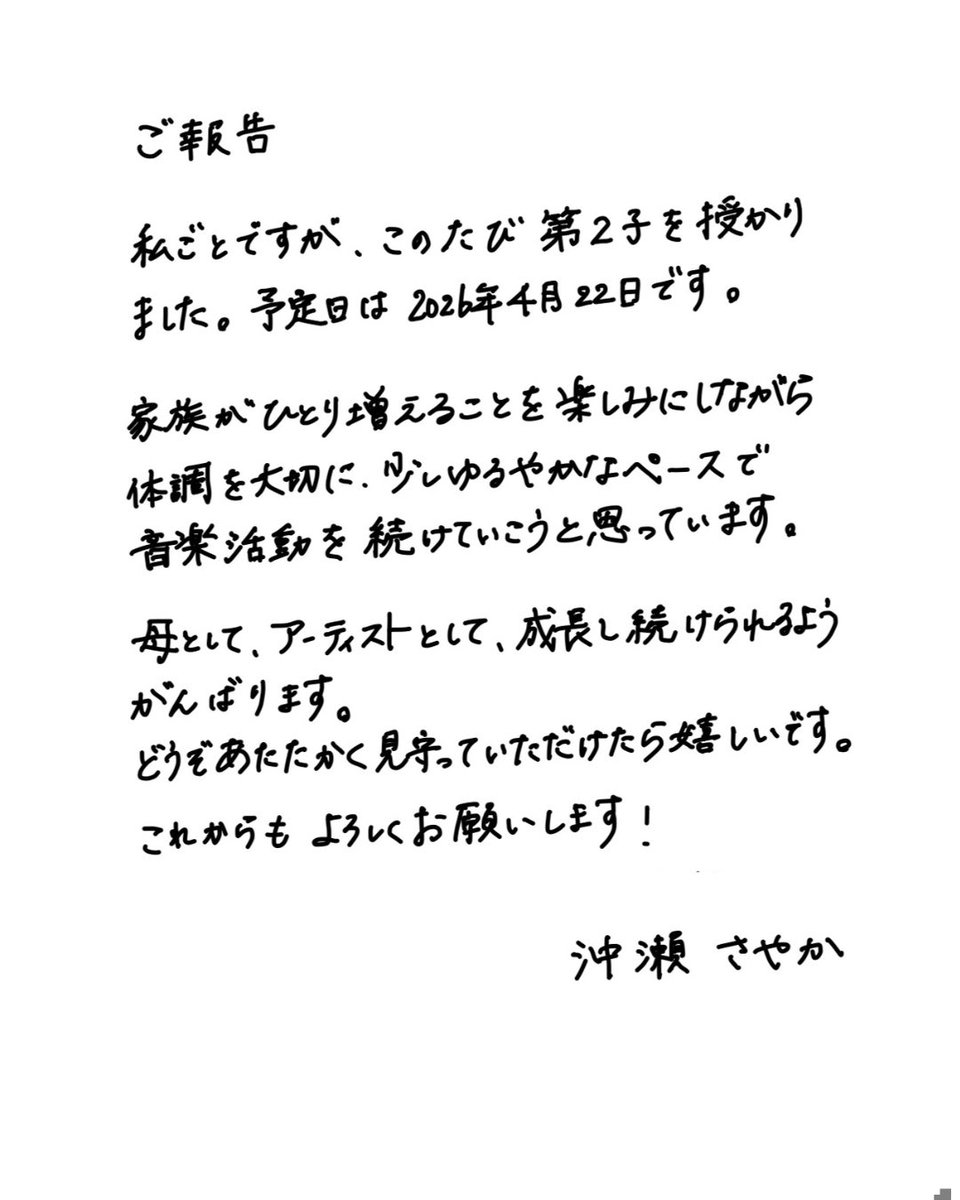 ご報告
私ごとですが、このたび第2子を授かり
ました。予定日は2026年4月22日です。
家族がひとり増えることを楽しみにしながら
体調を大切に、少しゆるやかなペースで
音楽活動を続けていこうと思っています。
母として、アーティストとして、成長し続けられるよう
がんばります。
どうぞあたたかく見守っていただけたら嬉しいです。
これからもよろしくお願いします!
沖瀬 さやか